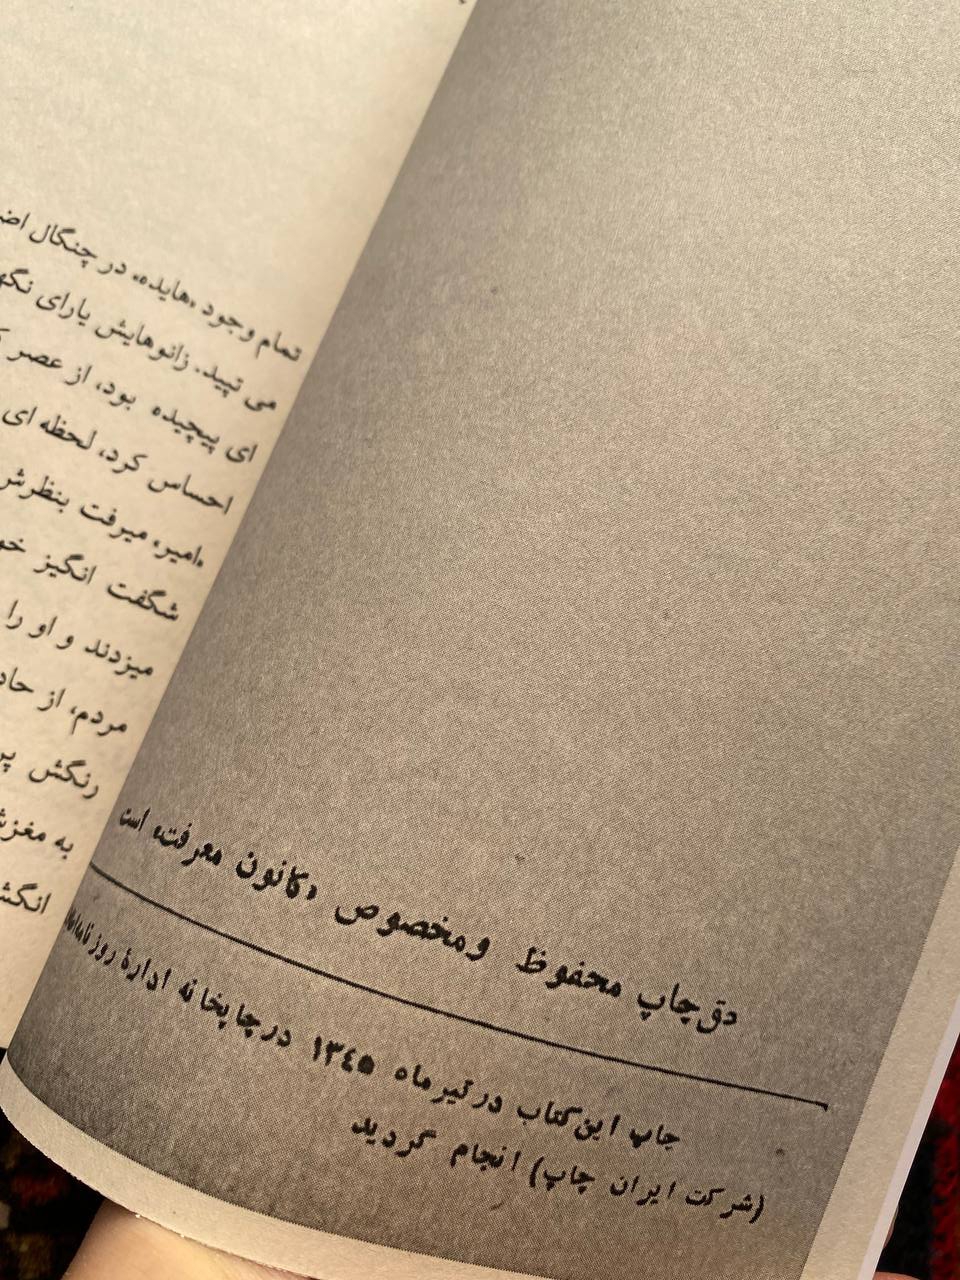 دق چاپ محفوظ ومخصوص «کانون معرفت» است
چاپ این کتاب در تیر ماه ۱۳٤۵ در چاپخانه ادارهٔ روزنامه
(شرکت ایران چاپ) انجام گردید
تمام وجود «هایده» در چنگال
می تپید. زانوهایش یارای
ای پیچیده بود، از عصر
احساس کرد، لحظه ای
«امیر» میرفت بنظرش
شگفت انگیز
میزدند و او را
مردم، از
رنگش
به